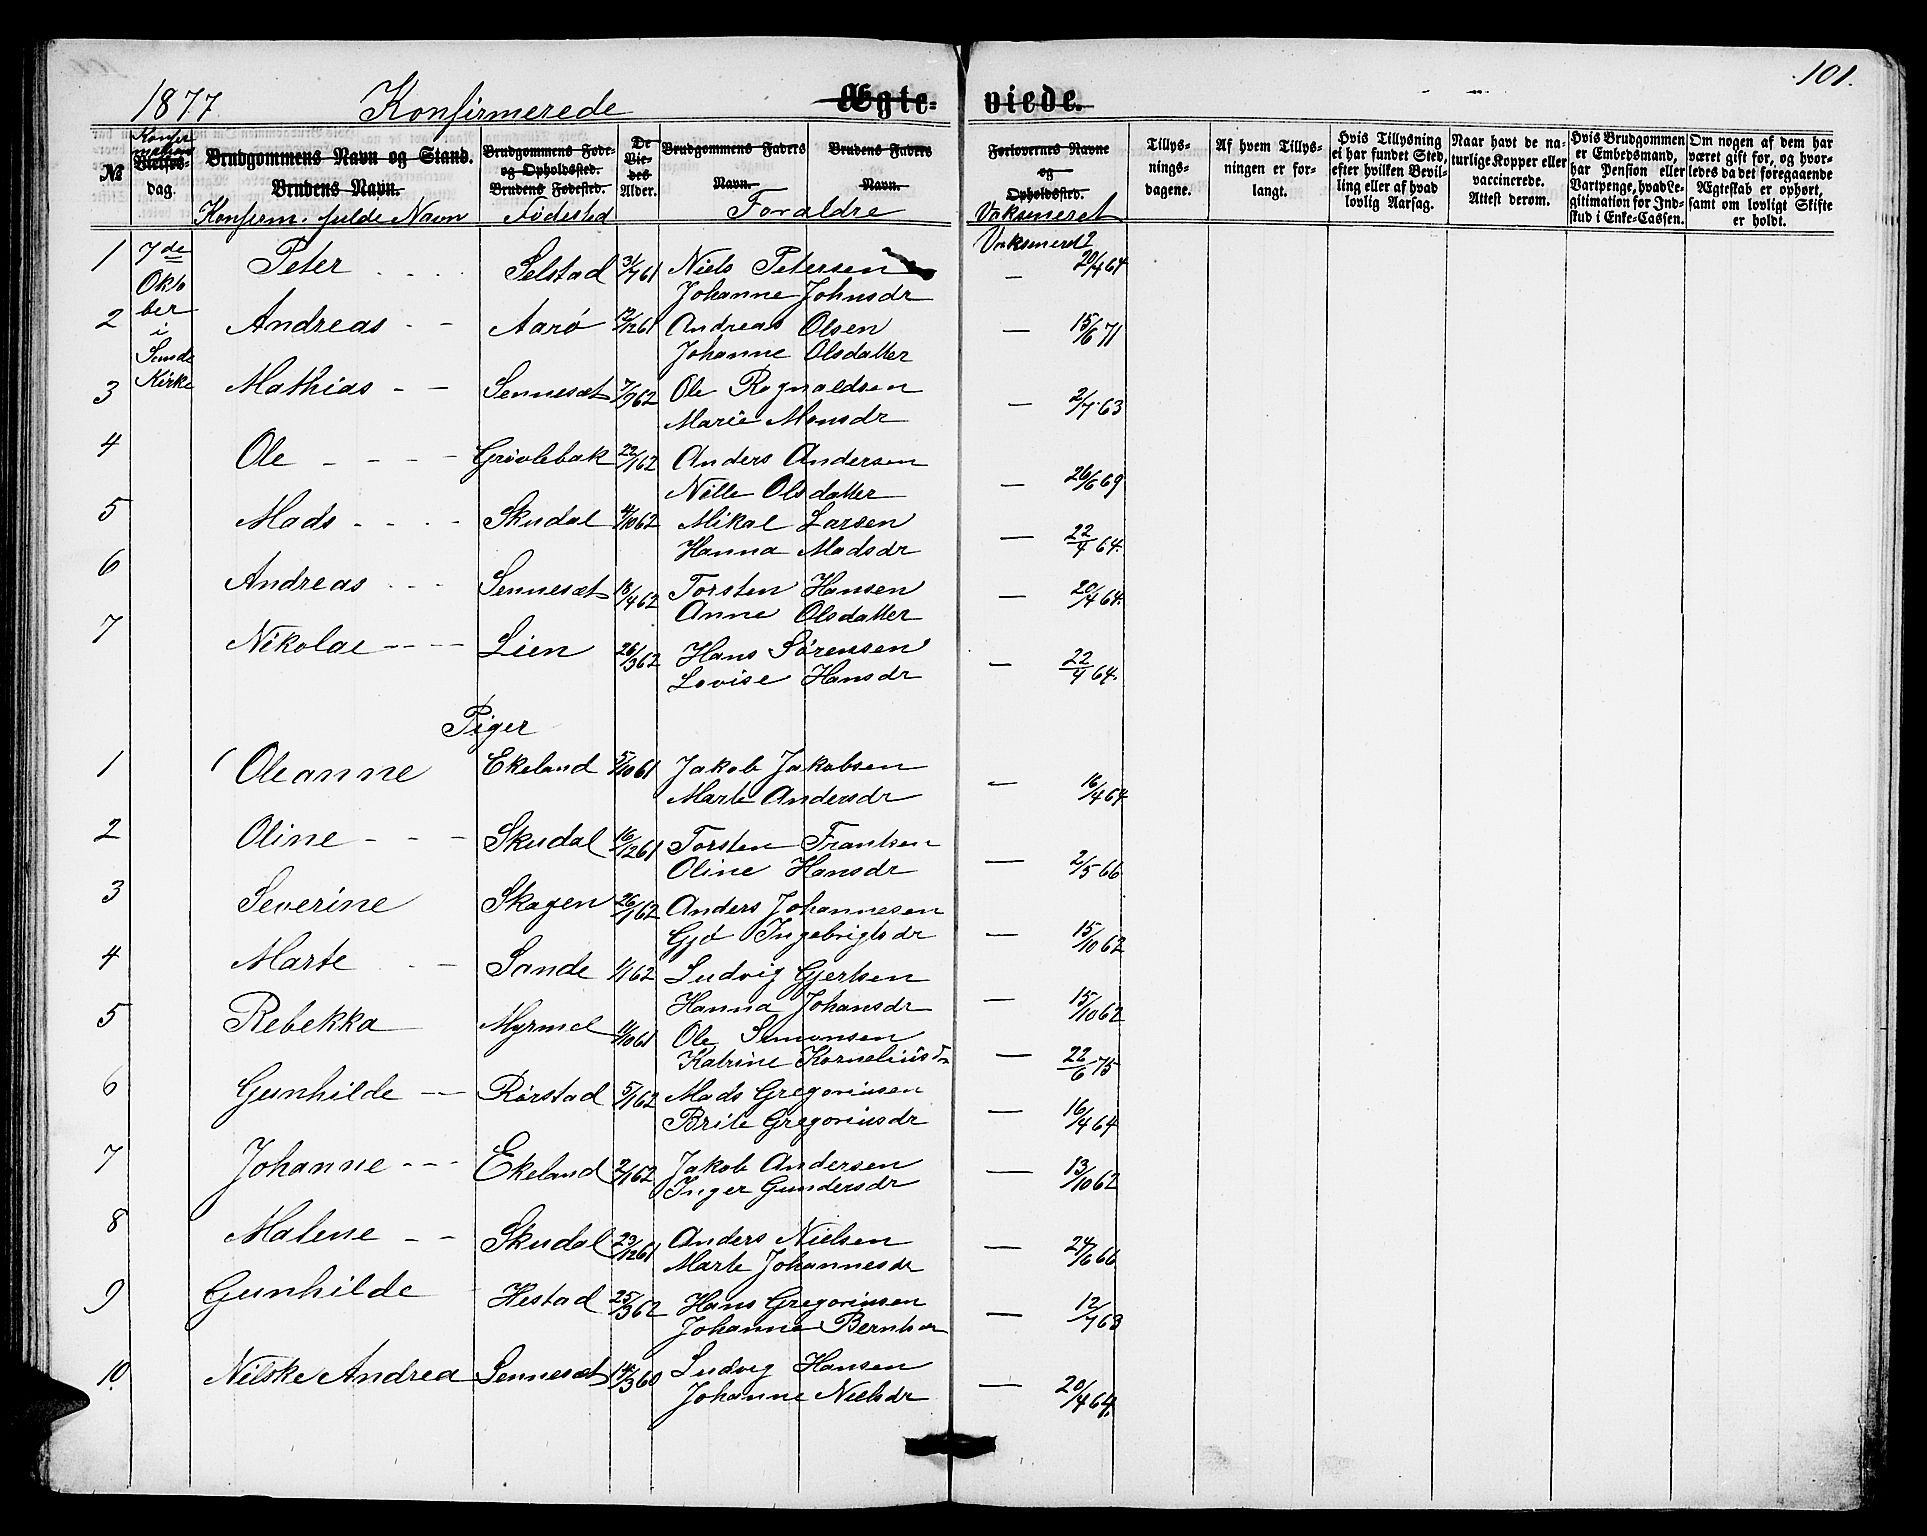 101.
1877 Konfirmerede Ægte- viede.
№
Konfirmations Vielses- dag.
Brudgommens Navn og Stand.
Brudens Navn.
Konfirm. fulde Navn
Brudgommens Føde-
og Opholdssted.
Brudens Fødested.
Fødested
De
Vie-
des
Alder.
Brudgommens Faders
Navn.
Brudens Faders
Navn.
Foraldre
Forlovernes Navne
og
Opholdssted.
Vaksineret
Tillys-
nings-
dagene.
Af hvem Tillys-
ningen er for-
langt.
Hvis Tillysning
ei har fundet Sted,
efter hvilken Bevil-
ling eller af hvad
lovlig Aarsag.
Naar havt de na-
turlige Kopper eller
vaccinerede.
Attest derom.
Hvis Brudgommen
er Embedsmand,
har Pension eller
Vartpenge, hvad Le-
gitimation for Ind-
skud i Enke-Cassen.
Om nogen af dem har
været gift for, og hvor-
ledes da det foregaaende
Ægteskab er ophørt,
samt om lovligt Skifte
er holdt.
7de
Okto
ber
i
Sande
Kirke
1 Peter Selstad 31/7 61 Niels Petersen Vaksineret
Johanne Johnsdr — 20/4 64
2 Andreas - - Aarø 12/12 61 Andreas Olsen — 15/6 71
Johanne Olsdatter
3 Mathias - - Sennesæt 7/9 62 Ole Rognaldsen
Marie Monsdr — 2/7 63
4 Ole - - - - Grøvlebak 22/1 62 Anders Andersen
Nille Olsdatter — 26/6 69
5 Mads - - - - Skudal 4/10 62 Mikal Larsen
Hanna Madsdr — 22/4 64.
6 Andreas - - - Sennesæt 18/4 62 Torsten Hansen — 20/4 64.
Anne Olsdatter
7 Nikolai - - - - Lien 26/3 62 Hans Sørensen — 22/4 64.
Lovise Hansdr
Piger
1 Oleanne Ekeland 5/10 61 Jakob Jakobsen
Marte Andersdr — 16/4 64
2 Oline - - - Skudal 16/12 61 Torsten Frantsen
Oline Hansdr — 2/5 66
3 Severine Skagen 26/1 62 Anders Johannesen
Gjd Ingebrigtsdr — 15/10 62
4 Marte - - Sande 1/1 62 Ludvig Gjertsen
Hanna Johansdr — 15/10 62
5 Rebekka Myrmel 11/10 61 Ole Simonsen
Katrine Korneliusdr — 22/6 75
6 Gunhilde - - Rørstad 5/1 62 Mads Gregoriusen
Brite Gregoriusdr — 16/4 64
7 Johanne - - - Ekeland 2/1 62 Jakob Andersen — 13/10 62
Inger Gundersdr
8 Malene - - Skudal 23/12 61 Anders Nielsen — 24/6 66
Marte Johannesdr
9 Gunhilde - Hestad 25/3 62 Hans Gregoriusen — 12/7 63
Johanne Berntsdr
10. Nilske Andrea Sennesæt 14/3 60 Ludvig Hansen
Johanne Nielsdr — 20/4 64.